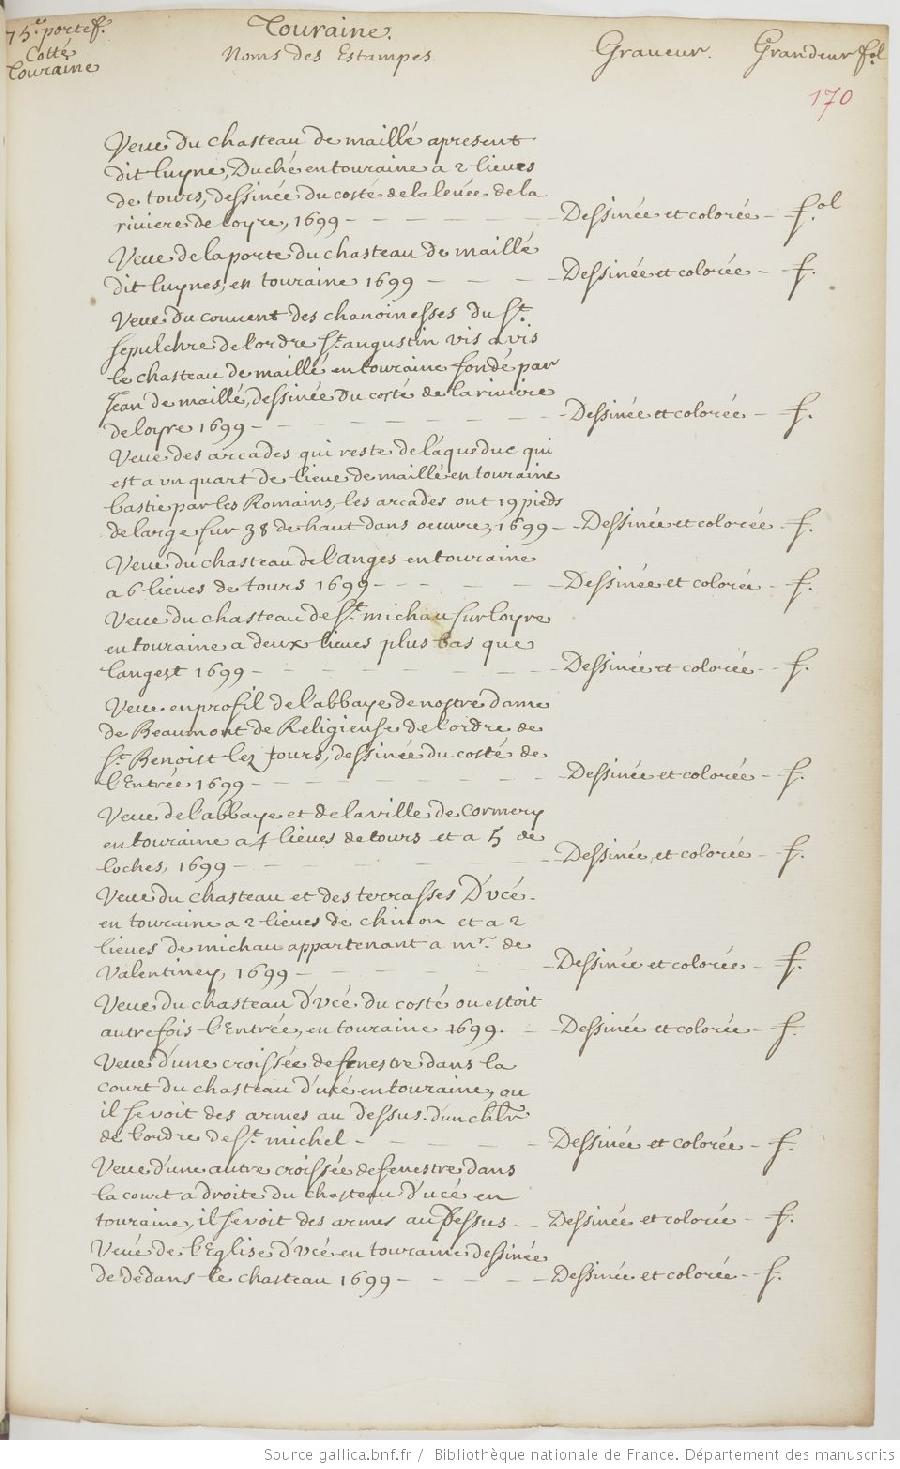 75.e portef.
Cotté
Touraine
Touraine.
Noms des Estampes
Graveur.
Grandeur fol
170
Veue du chasteau de maillé apresent
dit luyne, Duché en touraine a 2 lieues
de tours, dessinée du costé de la levée de la
riviere de loyre, 1699 - Dessinée et colorée - f.ol
Veue de la porte du chasteau de maillé
dit luynes, en touraine 1699 - Dessinée et colorée - f.
Veue du couvent des chanoinesses du St.
sepulchre de l'ordre St. augustin vis a vis
le chasteau de maillé, en touraine fondé par
Jean de maillé, dessinée du costé de la riviere
de loyre 1699 - Dessinée et colorée - f.
Veue des arcades qui reste de l'aqueduc qui
est a un quart de lieue de maillé en touraine
bastie par les Romains, les arcades ont 19 pieds
de large sur 38 de haut dans oeuvre, 1699 - Dessinée et colorée - f.
Veue du chasteau de l'anges en touraine
a 6 lieues de tours 1699 - Dessinée et colorée - f.
Veue du chasteau de St. michau sur loyre
en touraine a deux lieues plus bas que
langest 1699 - Dessinée et colorée - f.
Veue en profil de l'abbaye de nostre dame
de Beaumont de Religieuse de l'ordre de
St. Benoist lez Tours, dessinée du costé de
l'Entrée 1699 - Dessinée et colorée - f.
Veue de l'abbaye et de la ville de Cormery
en touraine a 4 lieues de tours et a 5 de
loches, 1699 - Dessinée et colorée - f.
Veue du chasteau et des terrasses D'ucé
en touraine a 2 lieues de chinon et a 2
lieues de michau appartenant a mr. de
Valentiney, 1699 - Dessinée et colorée - f.
Veue du chasteau d'ucé du costé ou estoit
autrefois l'Entrée, en touraine 1699. - Dessinée et colorée - f.
Veue d'une croissée de fenestre dans la
court du chasteau d'ucé en touraine, ou
il se voit des armes au dessus d'un chlr
de l'ordre de St. michel - Dessinée et colorée - f.
Veue d'une autre croissée de fenestre dans
la court a droite du chasteau d'ucé en
touraine, il se voit des armes au Dessus - Dessinée et colorée - f.
Veue de l'Eglise d'ucé en touraine dessinée
de dedans le chasteau 1699 - Dessinée et colorée - f.
Source gallica.bnf.fr / Bibliothèque nationale de France. Département des manuscrits